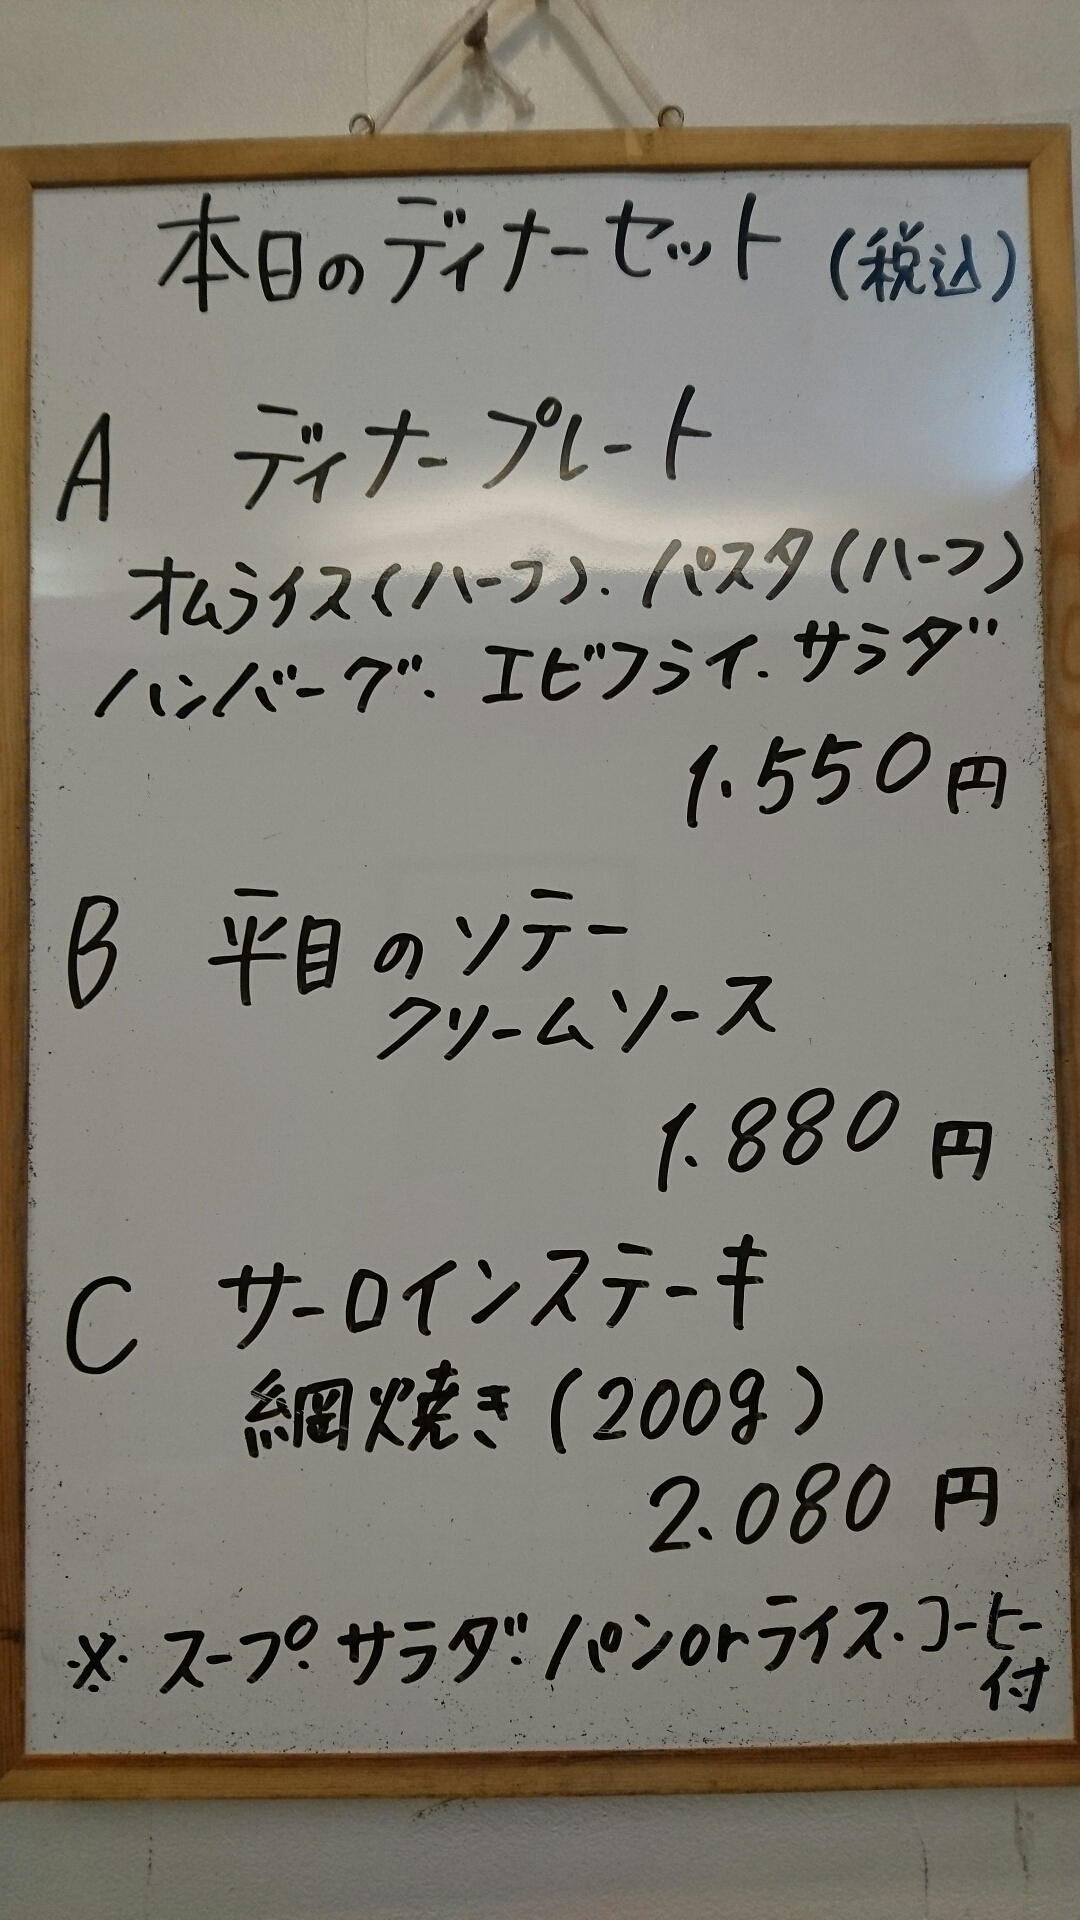 本日のディナーセット (税込)
A ディナープレート
オムライス(ハーフ)、パスタ(ハーフ)
ハンバーグ、エビフライ、サラダ
1.550円
B 平目のソテー
クリームソース
1.880円
C サーロインステーキ
網焼き(200g)
2.080円
※ スープ、サラダ、パンorライス、コーヒー
付